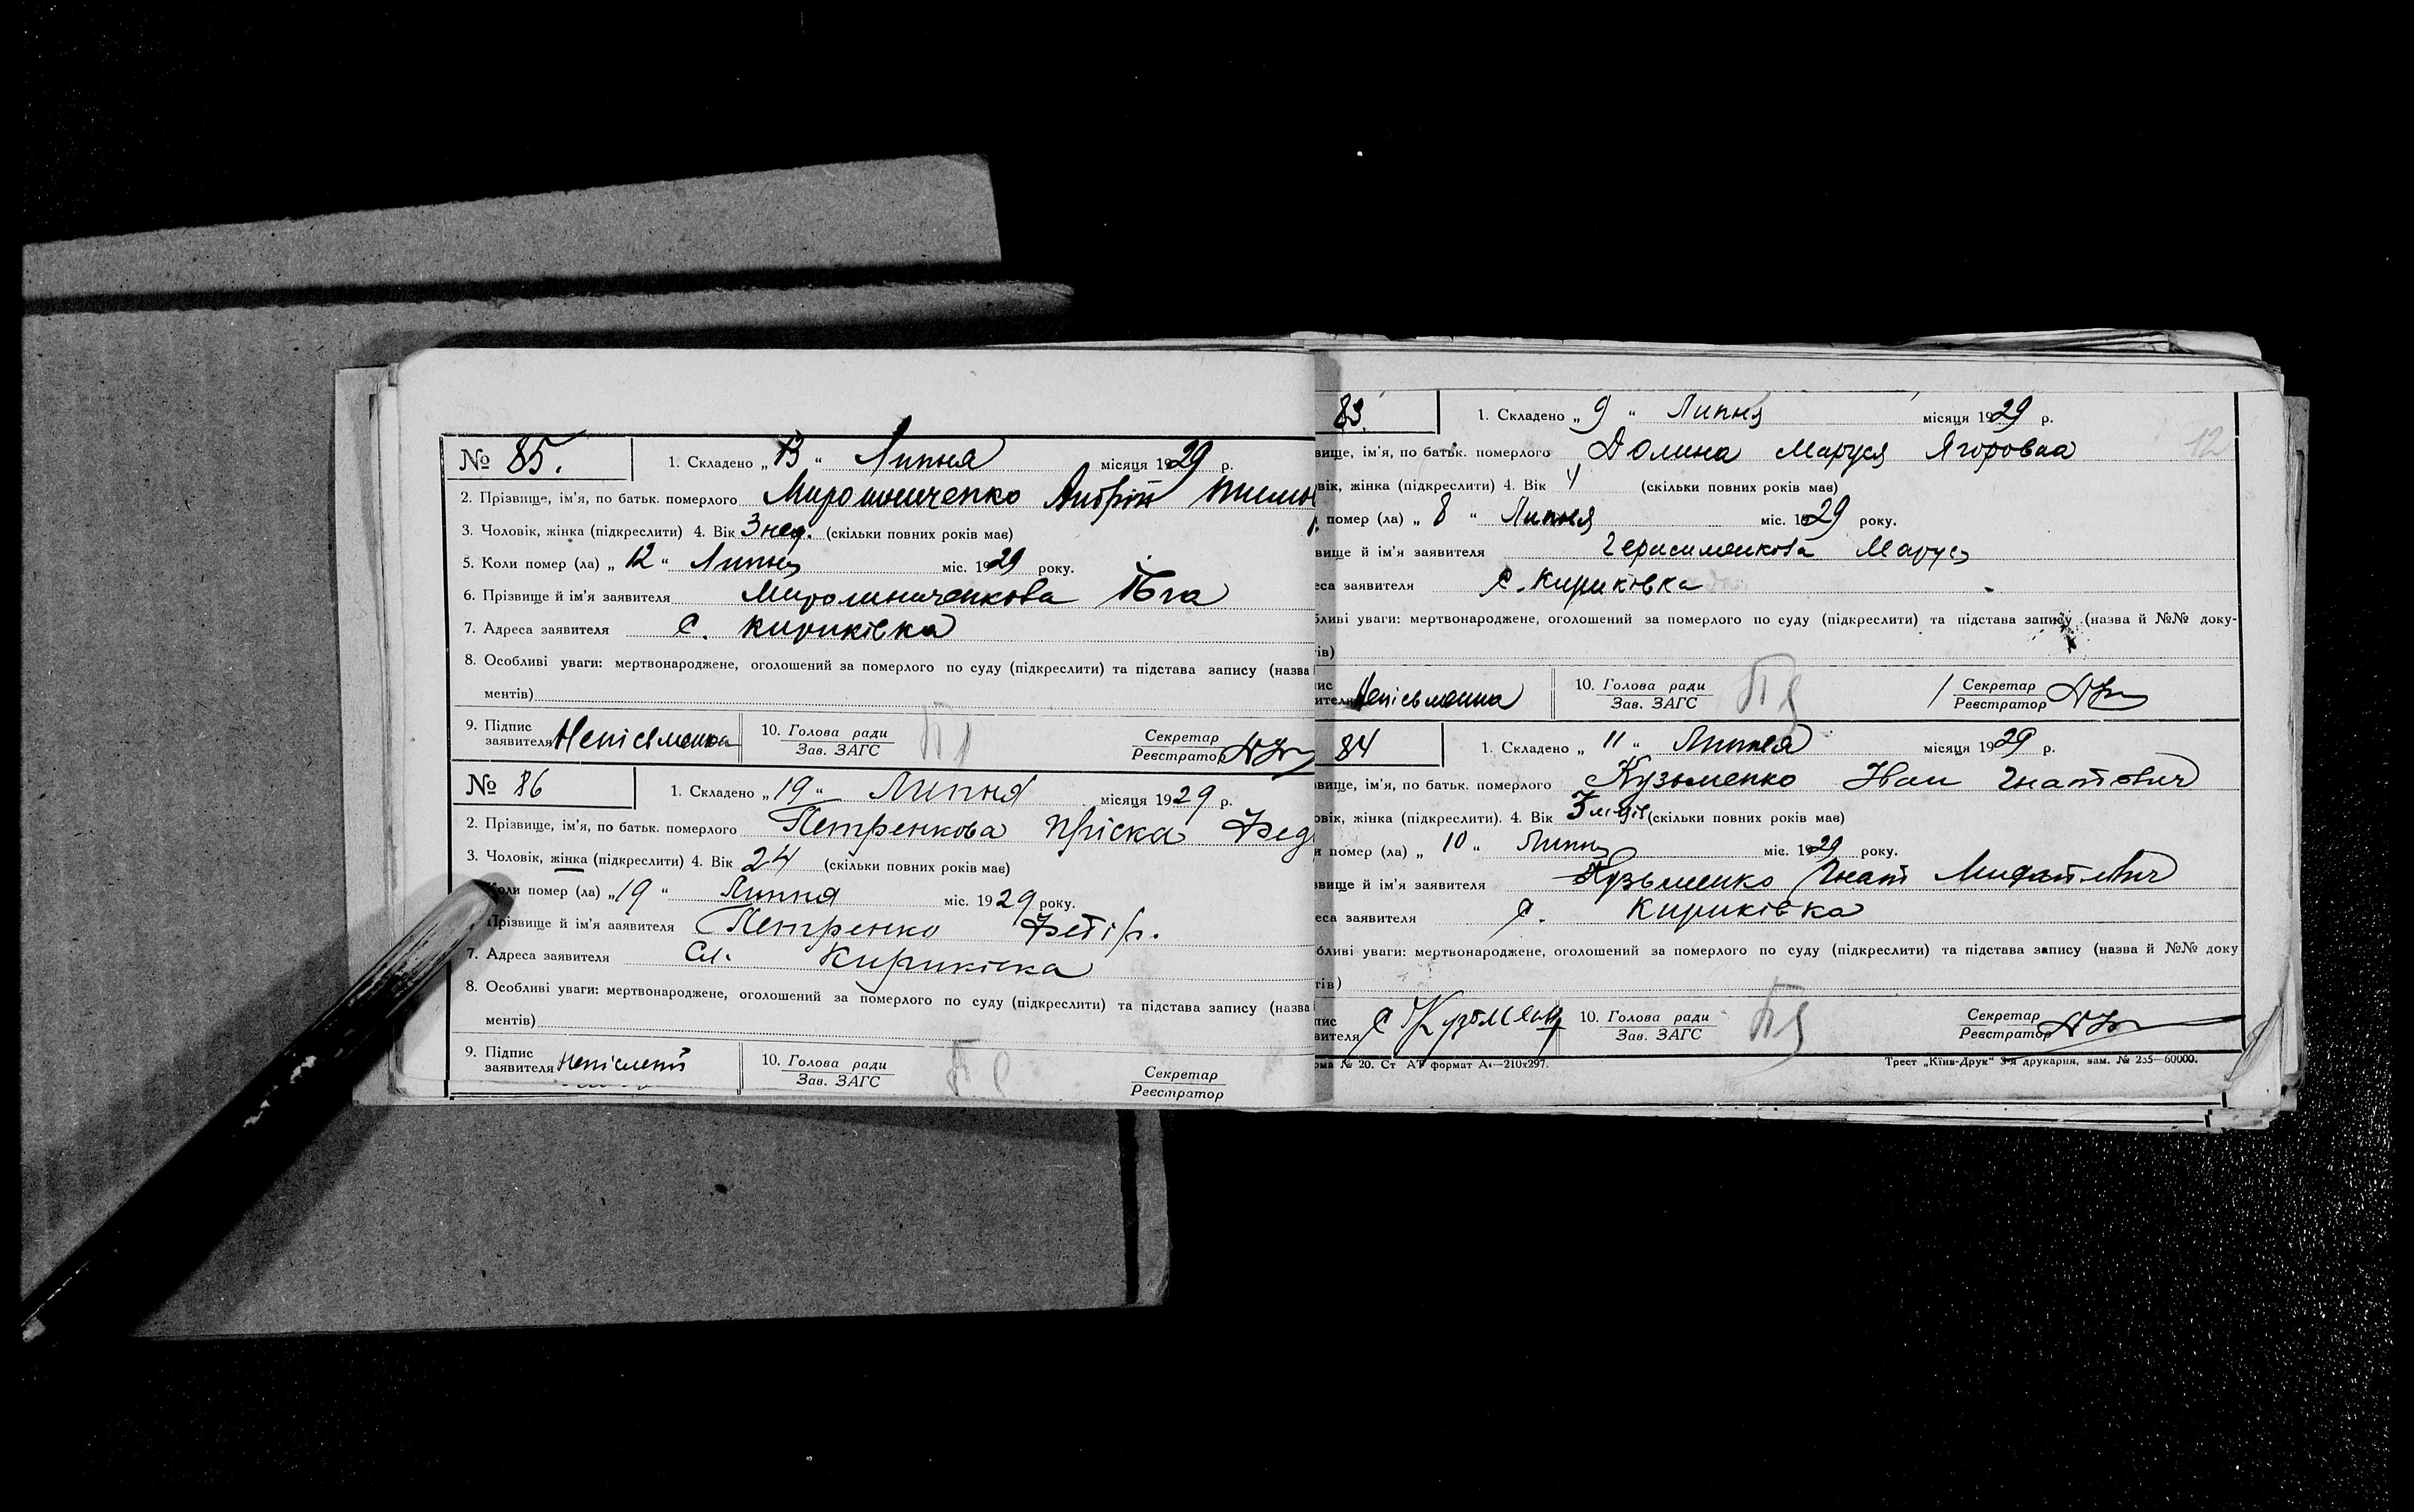 № 85. 1. Складено „13“ Липня місяця 1929 р.
2. Прізвище, ім'я, по батьк. померлого Мирошниченко Андрій
3. Чоловік, жінка (підкреслити) 4. Вік 3 нед. (скільки повних років має)
5. Коли помер (ла) „12“ Липня міс. 1929 року.
6. Прізвище й ім'я заявителя Мирошниченкова
7. Адреса заявителя с. Кириківка
8. Особливі уваги: мертвонароджене, оголошений за померлого по суду (підкреслити) та підстава запису (назва
ментів)
9. Підпис заявителя Неписьменна 10. Голова ради Зав. ЗАГС Секретар Реєстратор
№ 86 1. Складено „19“ Липня місяця 1929 р.
2. Прізвище, ім'я, по батьк. померлого Петренкова Пріска Фед
3. Чоловік, жінка (підкреслити) 4. Вік 24 (скільки повних років має)
Коли помер (ла) „19“ Липня міс. 1929 року.
Прізвище й ім'я заявителя Петренко Федір.
7. Адреса заявителя Сл. Кириківка
8. Особливі уваги: мертвонароджене, оголошений за померлого по суду (підкреслити) та підстава запису (назва
ментів)
9. Підпис заявителя 10. Голова ради Зав. ЗАГС Секретар Реєстратор
83. 1. Складено „9“ Липня місяця 1929 р.
вище, ім'я, по батьк. померлого Долина Маруся Ягоровна 12
вік, жінка (підкреслити) 4. Вік 4 (скільки повних років має)
помер (ла) „8“ Липня міс. 1929 року.
вище й ім'я заявителя Герасименкова Маруся
еса заявителя с. Кириківка
бливі уваги: мертвонароджене, оголошений за померлого по суду (підкреслити) та підстава запису (назва й №№ доку-
ів)
пис вителя Неписьменна 10. Голова ради Зав. ЗАГС Секретар Реєстратор
84 1. Складено „11“ Липня місяця 1929 р.
вище, ім'я, по батьк. померлого Кузьменко Іван Гнатович
овік, жінка (підкреслити). 4. Вік 3 (скільки повних років має)
и помер (ла) „10“ Липня міс. 1929 року.
звище й ім'я заявителя Кузьменко Гнат
еса заявителя с. Кириківка
бливі уваги: мертвонароджене, оголошений за померлого по суду (підкреслити) та підстава запису (назва й №№ доку
тів)
пис вителя 10. Голова ради Зав. ЗАГС Секретар Реєстратор
рма № 20. Ст АТ формат А4—210х297. Трест „Київ-Друк“ 3-я друкарня, зам. № 235—60000.